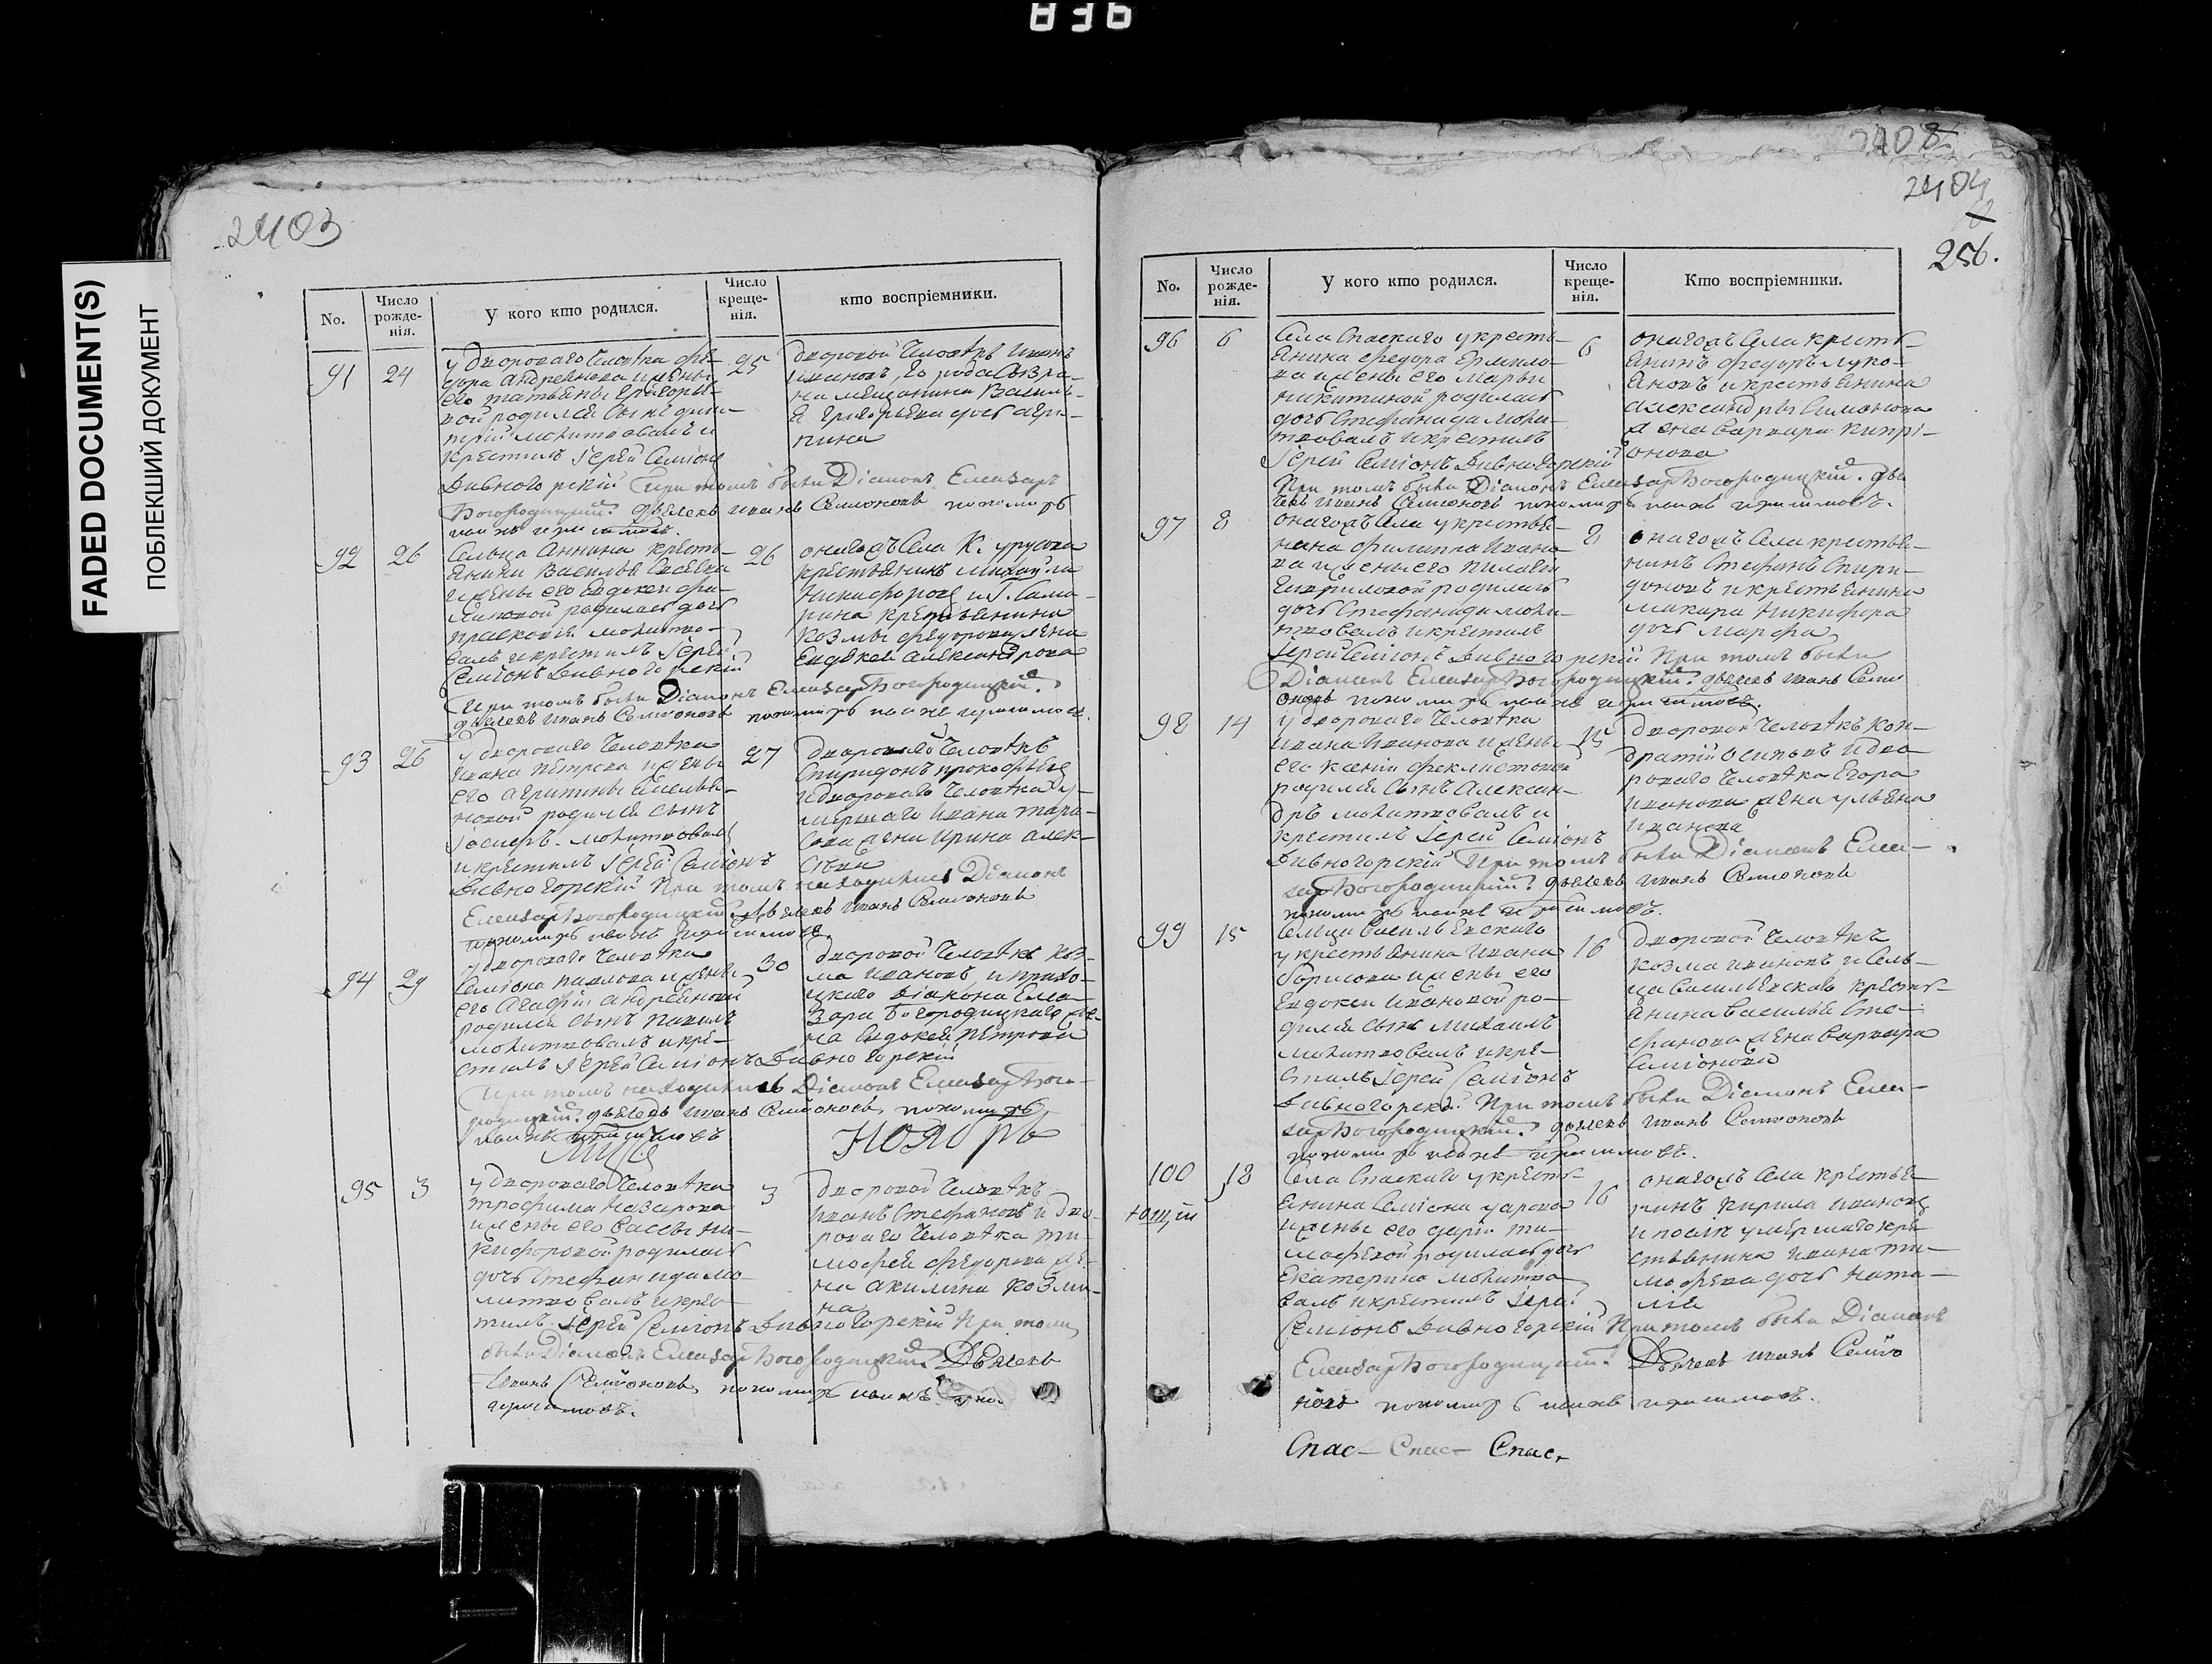 836
FADED DOCUMENT(S)
ПОБЛЕКШИЙ ДОКУМЕНТ
2403
No.
Число рожде-нія.
У кого кто родился.
Число креще-нія.
кто воспріемники.
91 24
у двороваго человѣка Фе-
дора Андреянова и жены
его татьяны Григорье-
вой родился сынъ дми-
трій молитвовалъ и
крестилъ Іерей Симеонъ
Дивногорскій При томъ были Діаконъ Елеазаръ
Богородицкій. дьячекъ иванъ Семіоновъ пономарь
25
дворовой человѣкъ иванъ
ивановъ, города Сызра-
на мещанина Василь-
я григорьева дочь агри-
пина
92 26
Сельца Аннина кресть-
янина Василья
и жены его Евдокеи
родилась дочь
прасковья молитво-
валъ и крестилъ Іерей
Семіонъ Дивногорскій
При томъ были Діаконъ Елеазаръ Богородицкій.
дьячекъ иванъ Семіоновъ пономарь
26
крестьянинъ михайла
никифоровъ
крестьянина
козмы федорова жена
Евдокея александрова
93 26
у двороваго человѣка
ивана петрова и жены
его агрипины Емелья-
новой родился сынъ
Іосифъ. молитвовалъ
и крестилъ Іерей Семіонъ
Дивногорскій При томъ находились Діаконъ
Елеазаръ Богородицкій. дьячекъ иванъ Семіоновъ
27
дворовой человѣкъ
Спиридонъ прокофьевъ
и двороваго человѣка у-
мершаго ивана тара-
сова жена ирина алек-
сѣева
94 29
у двороваго человѣка
Семіона павлова и жены
его Агафіи андреяновой
родился сынъ павелъ
молитвовалъ и кре-
стилъ Іерей Семіонъ Дивногорскій
При томъ находились Діаконъ Елеазаръ Бого-
родицкій. дьячекъ иванъ Семіоновъ, пономарь
30
дворовой человѣкъ коз-
ма ивановъ, и прихо-
цкаго діакона Елеа-
зара Богородицкаго же-
на Евдокея петрова
ноябрь
95 3
у двороваго человѣка
трофима назарова
и жены его Вассы ни-
кифоровой родилась
дочь Стефанида мо-
литвовалъ и крес-
тилъ Іерей Семіонъ Дивногорскій При томъ
были Діаконъ Елеазаръ Богородицкій. Дьячекъ
Иванъ Семіоновъ, пономарь
3
дворовой человѣкъ
иванъ Стефановъ и дво-
роваго человѣка ти-
мофея федорова же-
на акилина козми-
на
2408
2404
256.
No.
Число рожде-нія.
У кого кто родился.
Число креще-нія.
Кто воспріемники.
96 6
Села Спаскаго у кресть-
янина федора Ермило-
ва и жены его марьи
никитиной родилась
дочь Стефанида моли-
твовалъ и крестилъ
Іерей Семіонъ Дивногорскій
При томъ были Діаконъ Елеазаръ Богородицкій. дья-
чекъ иванъ Семіоновъ пономарь
6
онагожъ Села кресть-
янинъ федоръ луко-
яновъ и крестьянина
александры Симонова
жена варвара кипрі-
онова
97 8
онагожъ Села у крестья-
нина филиппа ивано-
ва и жены его пилагеи
родилась
дочь Стефанида моли-
твовалъ и крестилъ
Іерей Семіонъ Дивногорскій При томъ были
Діаконъ Елеазаръ Богородицкій. дьячекъ иванъ Семі-
оновъ пономарь
8
онагожъ Села крестья-
нинъ Стефанъ Спири-
доновъ и крестьянина
макара никифора
дочь марфа
98 14
у двороваго человѣка
ивана иванова и жены
его ксеніи феклистовой
родился сынъ Алексан-
дръ молитвовалъ и
крестилъ Іерей Семіонъ
Дивногорскій При томъ были Діаконъ Елеа-
заръ Богородицкій. дьячекъ иванъ Семіоновъ
15
дворовой человѣкъ кон-
дратій осиповъ и дво-
роваго человѣка Егора
иванова жена ульяна
иванова
99 15
Сельца Васильевскаго
у крестьянина ивана
борисова и жены его
Евдокеи ивановой ро-
дился сынъ михаилъ
молитвовалъ и кре-
стилъ Іерей Семіонъ
Дивногорскій При томъ были Діаконъ Елеа-
заръ Богородицкій. дьячекъ иванъ Семіоновъ
16
дворовой человѣкъ
козма ивановъ и сель-
ца Васильевскаго кресть-
янина василья Сте-
фанова жена варвара
Семіонова
100 18
Села Спаскаго у кресть-
янина Семіона уарова
и жены его даріи ти-
мофеевой родилась дочь
Екатерина молитво-
валъ и крестилъ Іерей
Семіонъ Дивногорскій При томъ были Діаконъ
Елеазаръ Богородицкій. Дьячекъ иванъ Семіо-
новъ пономарь
16
онагожъ Села крестья-
нинъ кирила ивановъ
и послѣ умершаго кре-
стьянина ивана ти-
мофеева дочь ната-
лія
Спас- Спас- Спас-